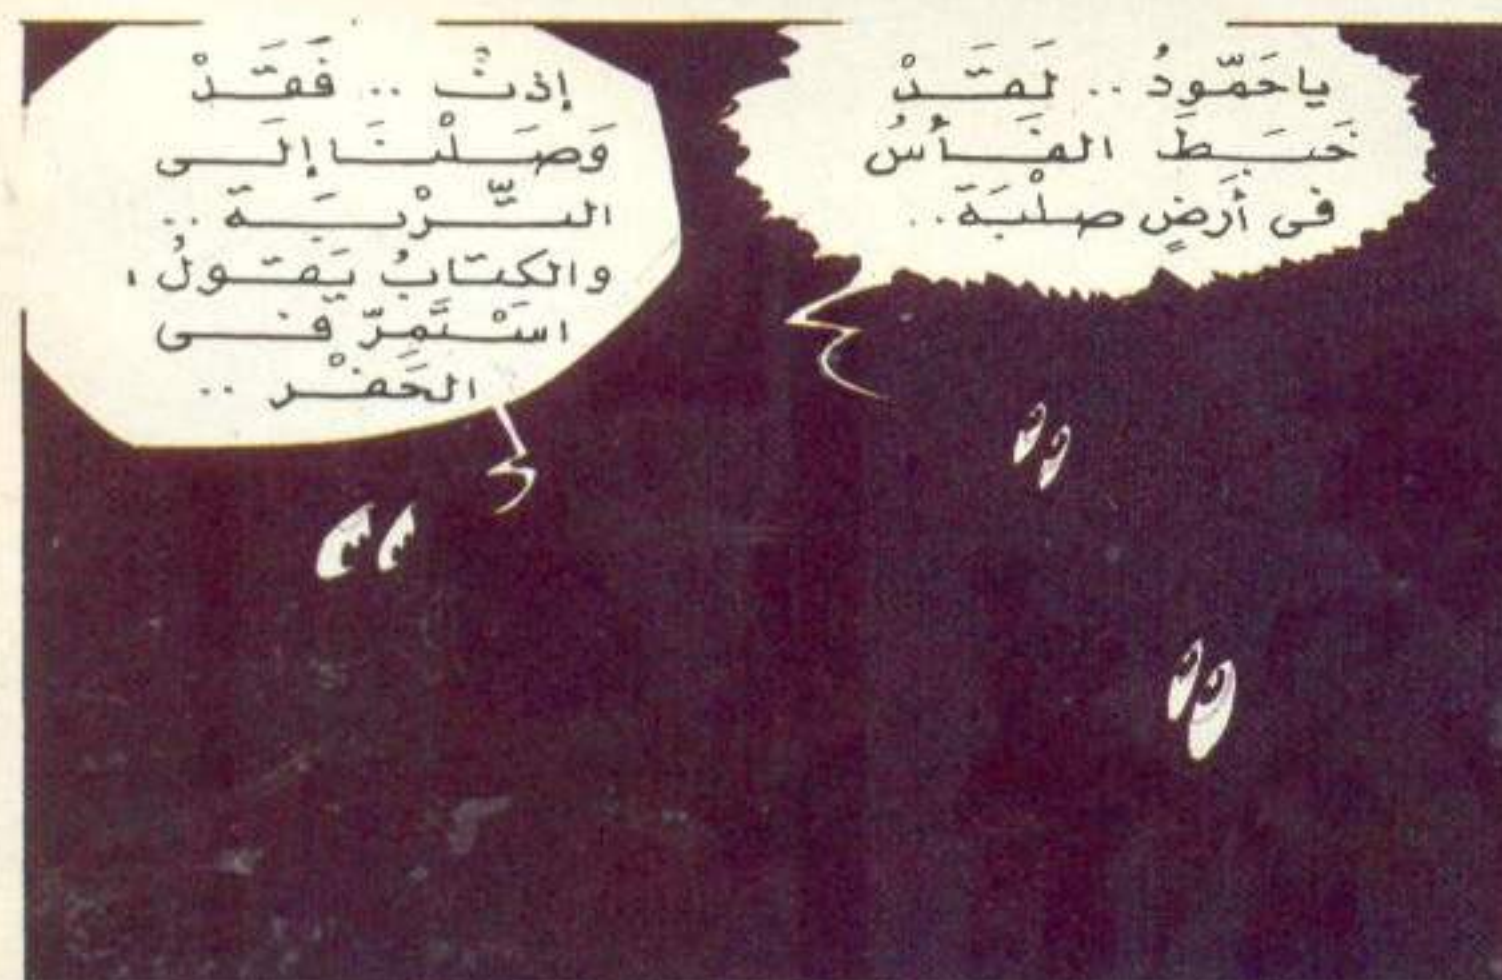 ياحَمّودُ .. لَقَدْ
خَبَطَ الفَأسُ
فى أَرضٍ صلْبَة..
إذنْ .. فَقَدْ
وَصَلْنَا إلَى
التّرْبَة ..
والكتابُ يَقولُ ،
استَمِرّ فى
الحَفْر ..